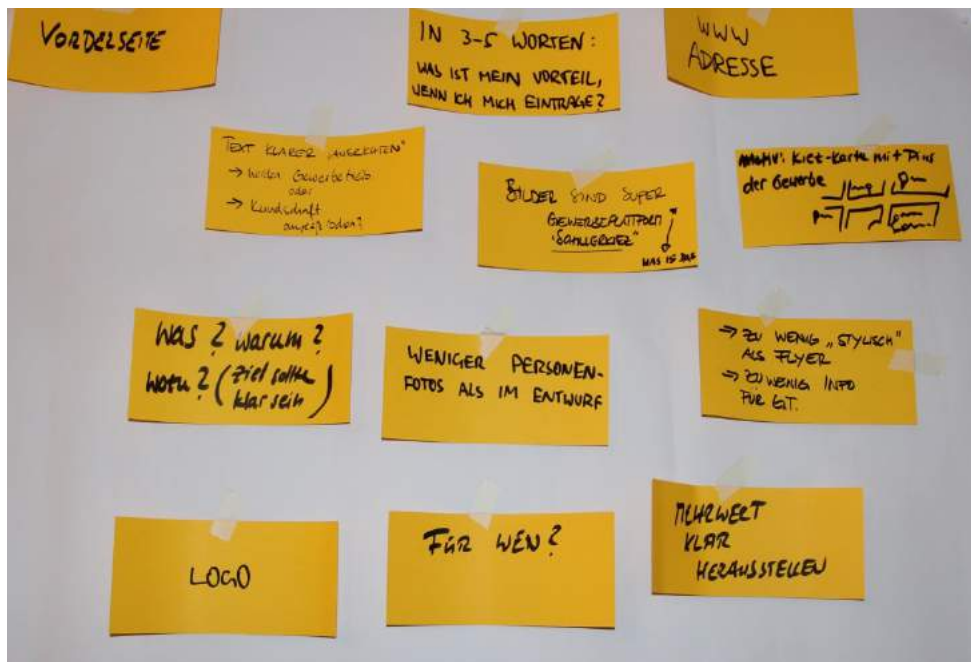 VORDERSEITE
IN 3-5 WORTEN:
WAS IST MEIN VORTEIL,
WENN ICH MICH EINTRAGE?
WWW
ADRESSE
TEXT KLARER
→ werden Gewerbetreib
oder
→ Kundschaft
angesprochen?
BILDER SIND SUPER
GEWERBEPLATTFORM
WAS IST DAS
Motiv: Kiez-Karte mit Pins
der Gewerbe
Was? Warum?
Wozu? (Ziel sollte
klar sein)
WENIGER PERSONEN-
FOTOS ALS IM ENTWURF
→ ZU WENIG „STYLISCH"
ALS FLYER
→ ZU WENIG INFO
FÜR GT.
LOGO
FÜR WEN?
MEHRWERT
KLAR
HERAUSSTELLEN